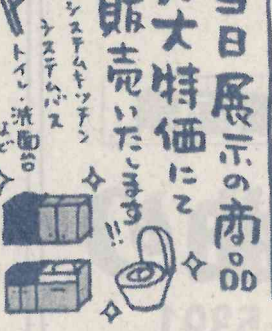 当日展示の商品
大特価にて
販売いたします!!
システムキッチン
システムバス
トイレ・洗面台
など